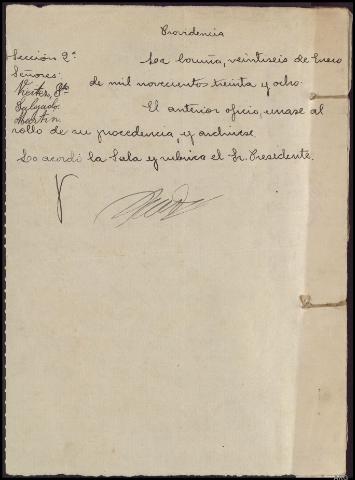 Providencia
Sección 2ª
Señores:
Salgado.
Martin.
La Coruña, veintiseis de Enero
de mil novecientos treinta y ocho.
El anterior oficio, unase al
rollo de su procedencia, y archivese.
Lo acordó la Sala y rubrica el Sr. Presidente.